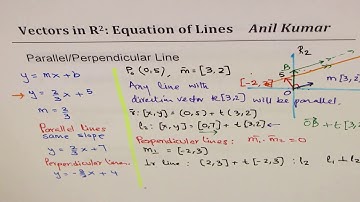 Vectors in R²: Equation of Lines Anil Kumar
Parallel/Perpendicular Line
y = mx + b
→ y = 2/3 x + 5
m = 2/3
Parallel Lines
same slope
y = 2/3 x + 7
Perpendicular Lines
y = -3/2 x + 4
P₀ (0,5), m̄ = [3,2]
Any Line with
direction vector k[3,2] will be parallel.
r̄: [x,y] = (0,5) + t(3,2)
l₂: [x,y] = [0,7] + t[3,2] ←
Perpendicular Lines: m̄₁·m̄₂ = 0
m⊥ = [-2,3]
⊥r line: (2,3) + t[-2,3] : l₂ l₁ ⊥ l₂
R₂
B
5
[-2,
O
m[3,2]
OB + t[